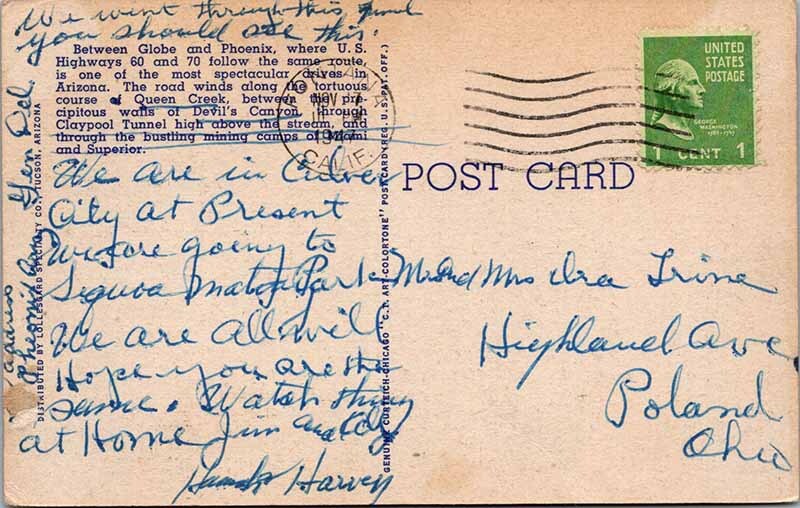 We went through this Tunnel
you should see this.
Between Globe and Phoenix, where U.S.
Highways 60 and 70 follow the same route,
is one of the most spectacular drives in
Arizona. The road winds along the tortuous
course of Queen Creek, between the pre-
cipitous walls of Devil's Canyon, through
Claypool Tunnel high above the stream, and
through the bustling mining camps of Miami
and Superior.
We are in Culver
City at Present
we are going to
Park
We are all well
Hope you are the
same. Watch thing
at Home Jim and
Harvey
address
Gen Del.
DISTRIBUTED BY LOLLESGARD SPECIALTY CO., TUCSON, ARIZONA
GENUINE CURTEICH-CHICAGO "C.T. ART-COLORTONE" POST CARD (REG. U.S. PAT. OFF.)
NOV 7
CALIF.
UNITED
STATES
POSTAGE
GEORGE
WASHINGTON
1 CENT 1
POST CARD
Mr and Mrs Ira
Highland Ave
Poland
Ohio